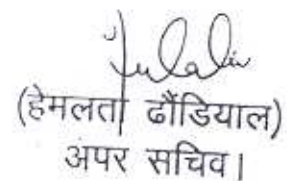 (हेमलता ढौंडियाल)
अपर सचिव।